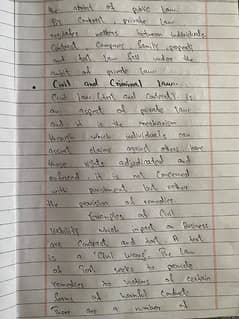 the ambit of public law.
By Contrast, private law
regulates matters between individuals
Contract, Company, family, property
and tort law fall under the
ambit of private law.
• Civil and Criminal law:-
Civil law (tort and contract) is
an aspect of private law
and it is the mechanism
through which individuals can
assert claims against others have
those rights adjudicated and
enforced. it is not concerned
with punishment but rather
the provision of remedies.
Examples of Civil
liability which impact on Business
are Contract and tort. A tort
is a "Civil Wrong". The law
of Tort seeks to provide
remedies to victims of certain
forms of harmful Conduct.
There are a number of